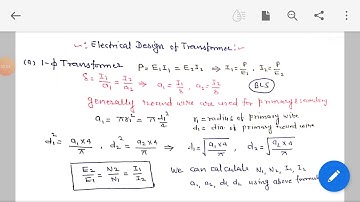 ~: Electrical Design of Transformer:~
(a) 1-ϕ Transformer P = E₁I₁ = E₂I₂ ⇒ I₁ = P/E₁ , I₂ = P/E₂
δ = I₁/a₁ = I₂/a₂ ⇒ a₁ = I₁/δ , a₂ = I₂/δ
BLS
generally round wire are used for primary secondary
a₁ = πr₁² = πd₁²/4
r₁ = radius of primary wire
d₁ = dia of primary round wire
d₁² = a₁×4/π , d₂² = a₂×4/π ⇒ d₁ = √(a₁×4/π) , d₂ = √(a₂×4/π)
E₂/E₁ = N₂/N₁ = I₁/I₂
We can calculate N₁, N₂, I₁, I₂
a₁, a₂, d₁, d₂ using above formula